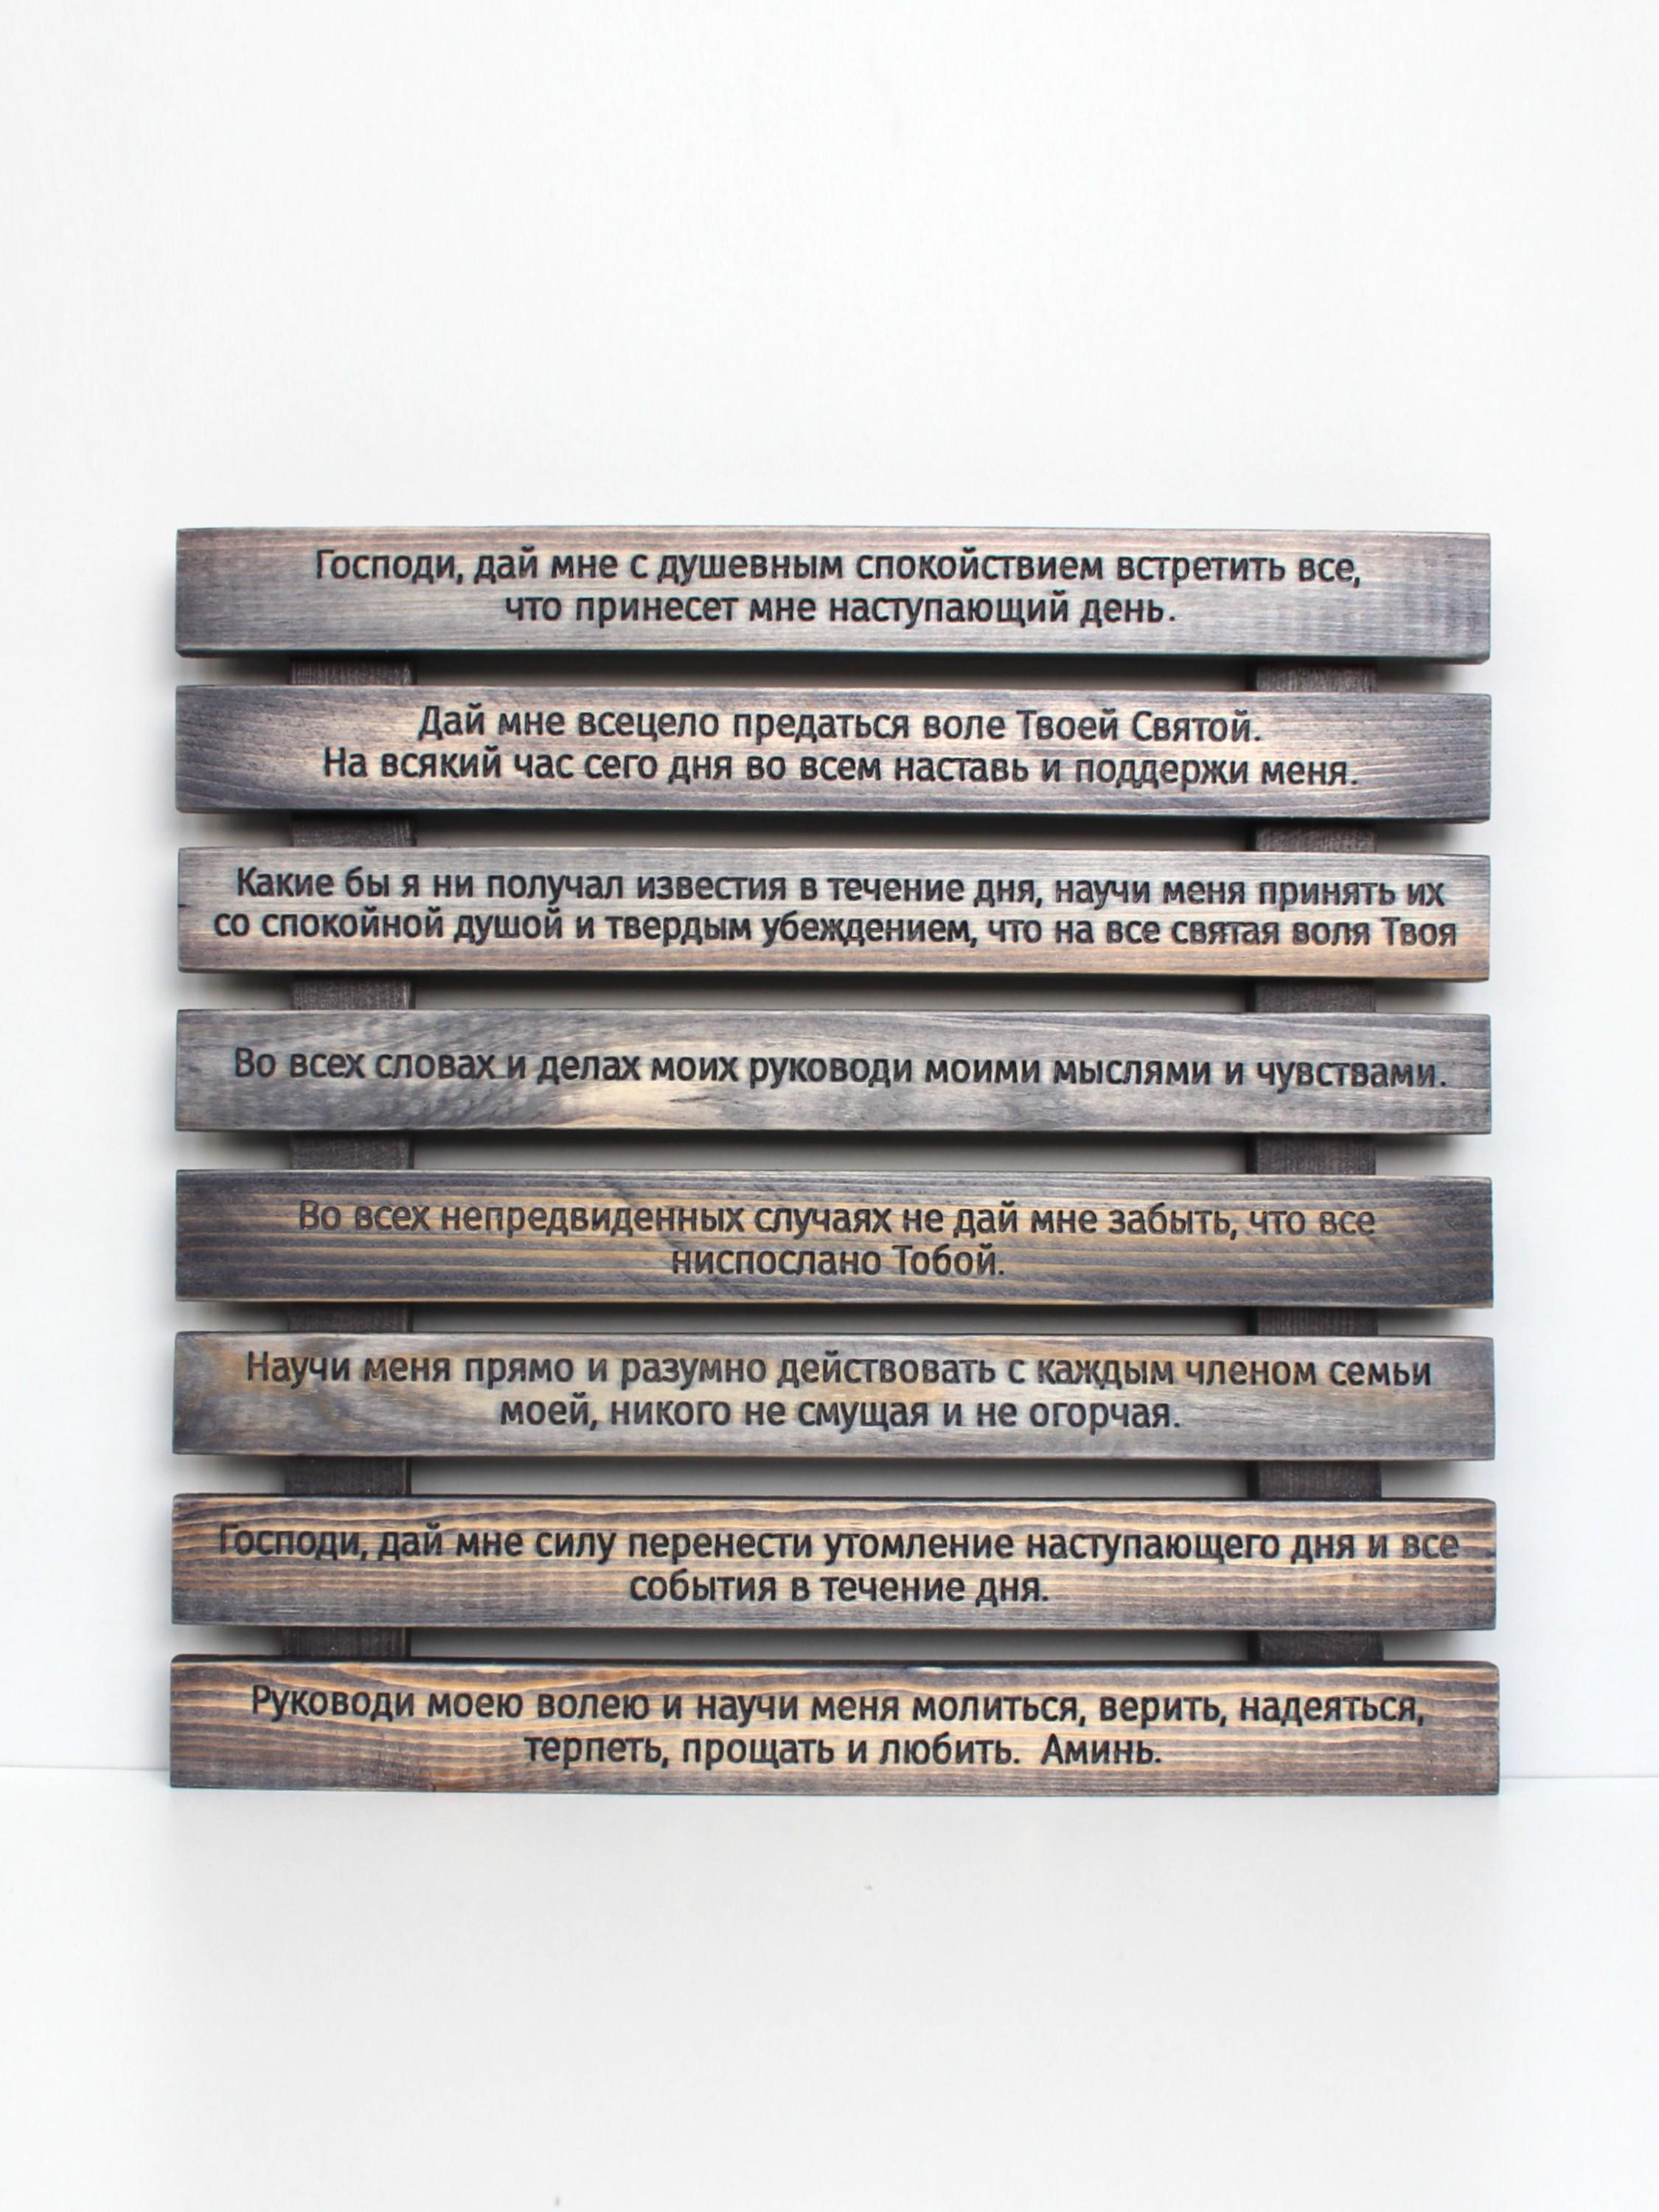 Господи, дай мне с душевным спокойствием встретить все,
что принесет мне наступающий день.
Дай мне всецело предаться воле Твоей Святой.
На всякий час сего дня во всем наставь и поддержи меня.
Какие бы я ни получал известия в течение дня, научи меня принять их
со спокойной душой и твердым убеждением, что на все святая воля Твоя
Во всех словах и делах моих руководи моими мыслями и чувствами.
Во всех непредвиденных случаях не дай мне забыть, что все
ниспослано Тобой.
Научи меня прямо и разумно действовать с каждым членом семьи
моей, никого не смущая и не огорчая.
Господи, дай мне силу перенести утомление наступающего дня и все
события в течение дня.
Руководи моею волею и научи меня молиться, верить, надеяться,
терпеть, прощать и любить. Аминь.